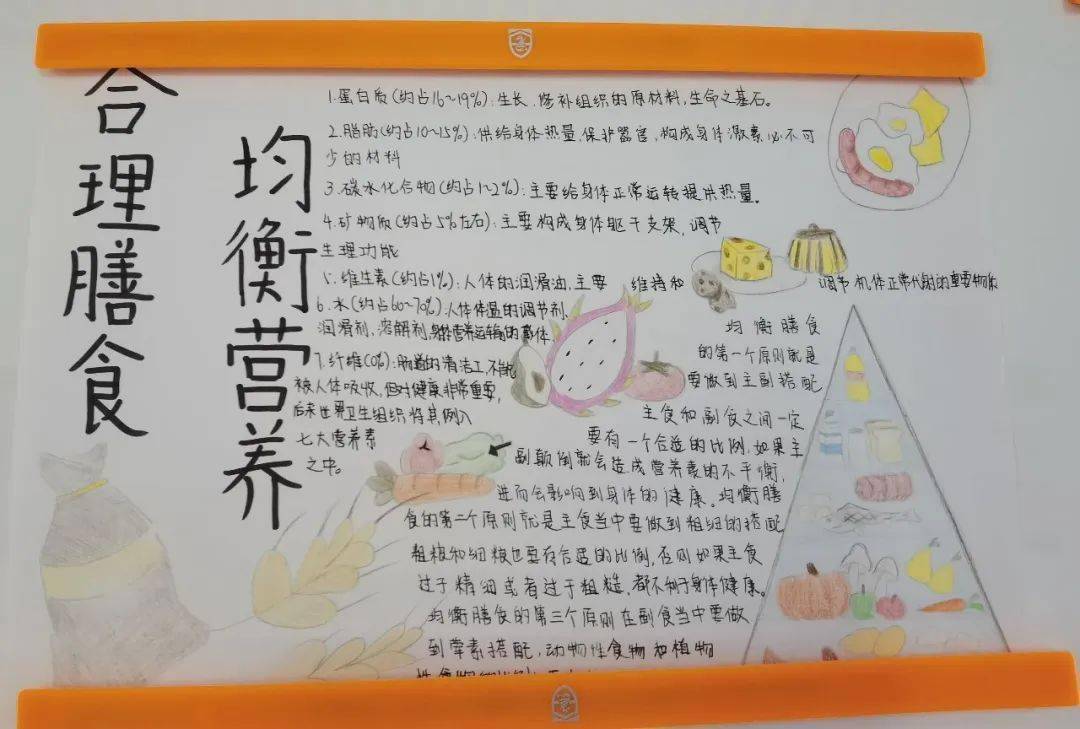 合理膳食
均衡营养
1.蛋白质(约占16~19%):生长、修补组织的原材料,生命之基石。
2.脂肪(约占10~15%):供给身体热量,保护器官,构成身体激素必不可
少的材料
3.碳水化合物(约占1~2%):主要给身体正常运转提供热量。
4.矿物质(约占5%左右):主要构成身体躯干支架,调节
生理功能
5.维生素(约占1%):人体的润滑油,主要 维持和 调节机体正常代谢的重要物质
6.水(约占60~70%):人体体温的调节剂,
润滑剂,溶解剂,营养运输的载体.
7.纤维(0%):肠道的清洁工,不能
被人体吸收,但对健康非常重要,
后来世界卫生组织将其例入
七大营养素
之中。
均衡膳食
的第一个原则就是
要做到主副搭配
主食和副食之间一定
要有一个合适的比例,如果主
副颠倒就会造成营养素的不平衡,
进而会影响到身体的健康。均衡膳
食的第二个原则就是主食当中要做到粗细的搭配
粗粮和细粮也要有合适的比例,否则如果主食
过于精细或者过于粗糙,都不利于身体健康。
均衡膳食的第三个原则在副食当中要做
到荤素搭配,动物性食物和植物